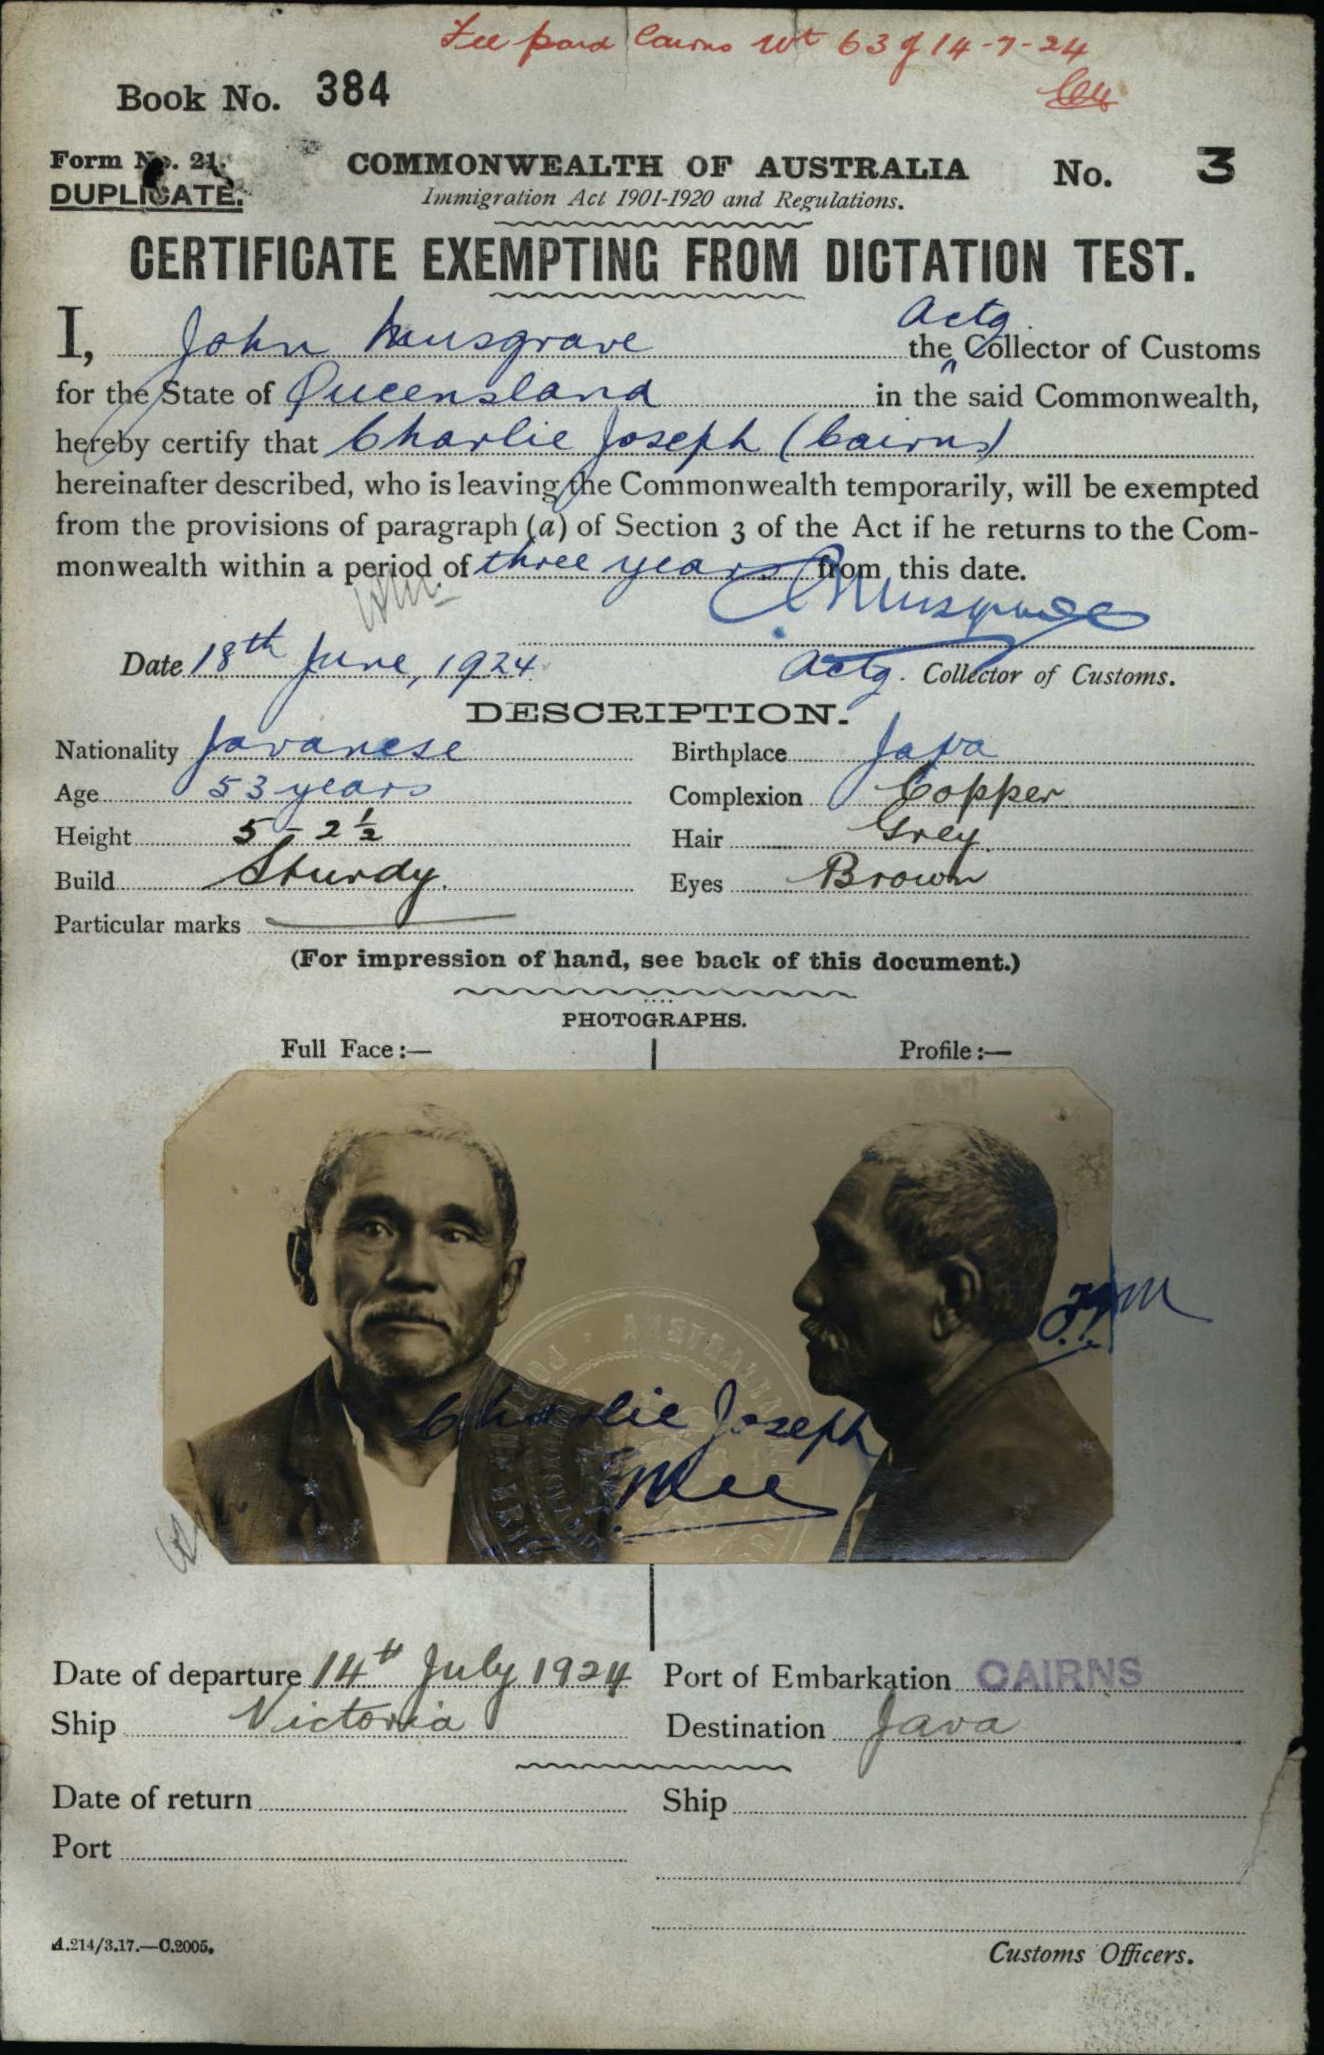 Fee paid Cairns Wt 63 of 14-7-24
Book No. 384
Form No. 21.
DUPLICATE.
COMMONWEALTH OF AUSTRALIA
No. 3
Immigration Act 1901-1920 and Regulations.
CERTIFICATE EXEMPTING FROM DICTATION TEST.
Actg.
I, John Musgrave the Collector of Customs
for the State of Queensland in the said Commonwealth,
hereby certify that Charlie Joseph (Cairns)
hereinafter described, who is leaving the Commonwealth temporarily, will be exempted
from the provisions of paragraph (a) of Section 3 of the Act if he returns to the Com-
monwealth within a period of three years from this date.
Musgrave
Date 18th June, 1924.
Actg. Collector of Customs.
DESCRIPTION.
Nationality Javanese Birthplace Java
Age 53 years Complexion Copper
Height 5 - 2 1/2 Hair Grey.
Build Sturdy. Eyes Brown
Particular marks
(For impression of hand, see back of this document.)
PHOTOGRAPHS.
Full Face :— Profile :—
Charlie Joseph
Date of departure 14th July 1924 Port of Embarkation CAIRNS
Ship Victoria Destination Java
Date of return Ship
Port
A.214/3.17.—C.2005.
Customs Officers.